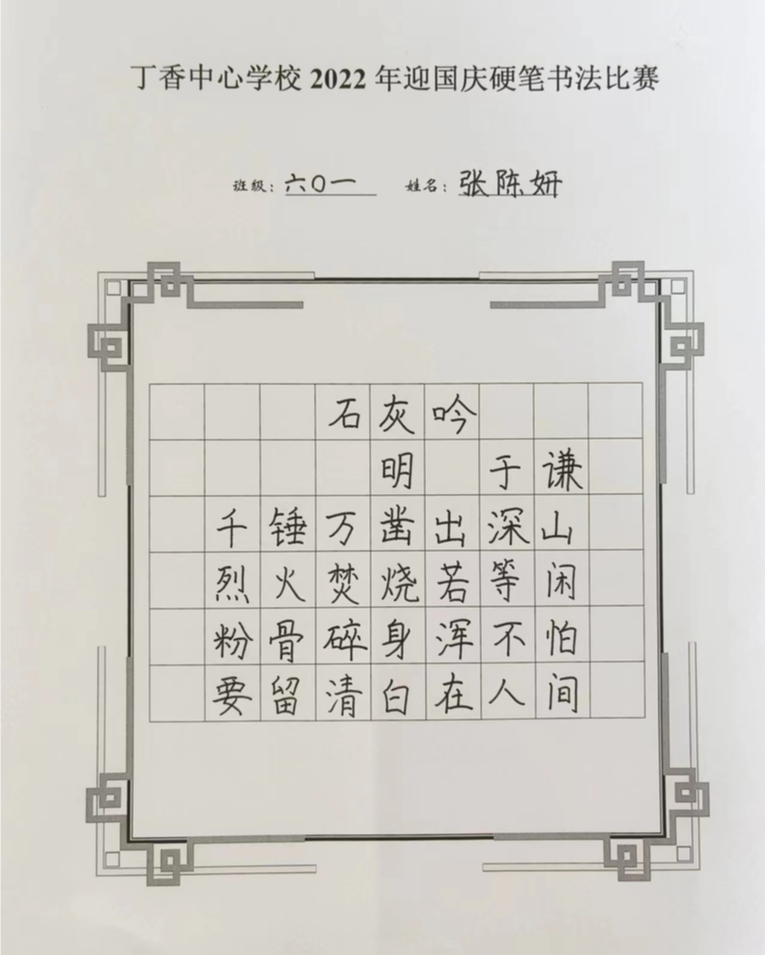 丁香中心学校 2022 年迎国庆硬笔书法比赛
班级：六〇一 姓名：张陈妍
石灰吟
明 于谦
千锤万凿出深山
烈火焚烧若等闲
粉骨碎身浑不怕
要留清白在人间